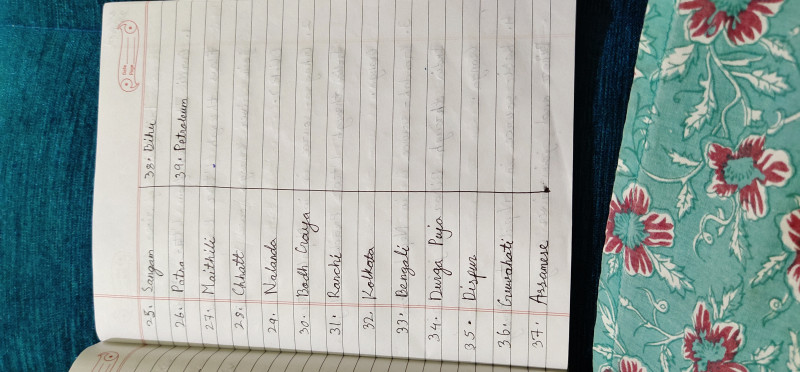 25. Sangam
26. Patna
27. Maithili
28. Chhatt
29. Nalanda
30. Bodh Gaya
31. Ranchi
32. Kolkata
33. Bengali
34. Durga Puja
35. Dispur
36. Guwahati
37. Assamese
38. Bihu
39. Petroleum